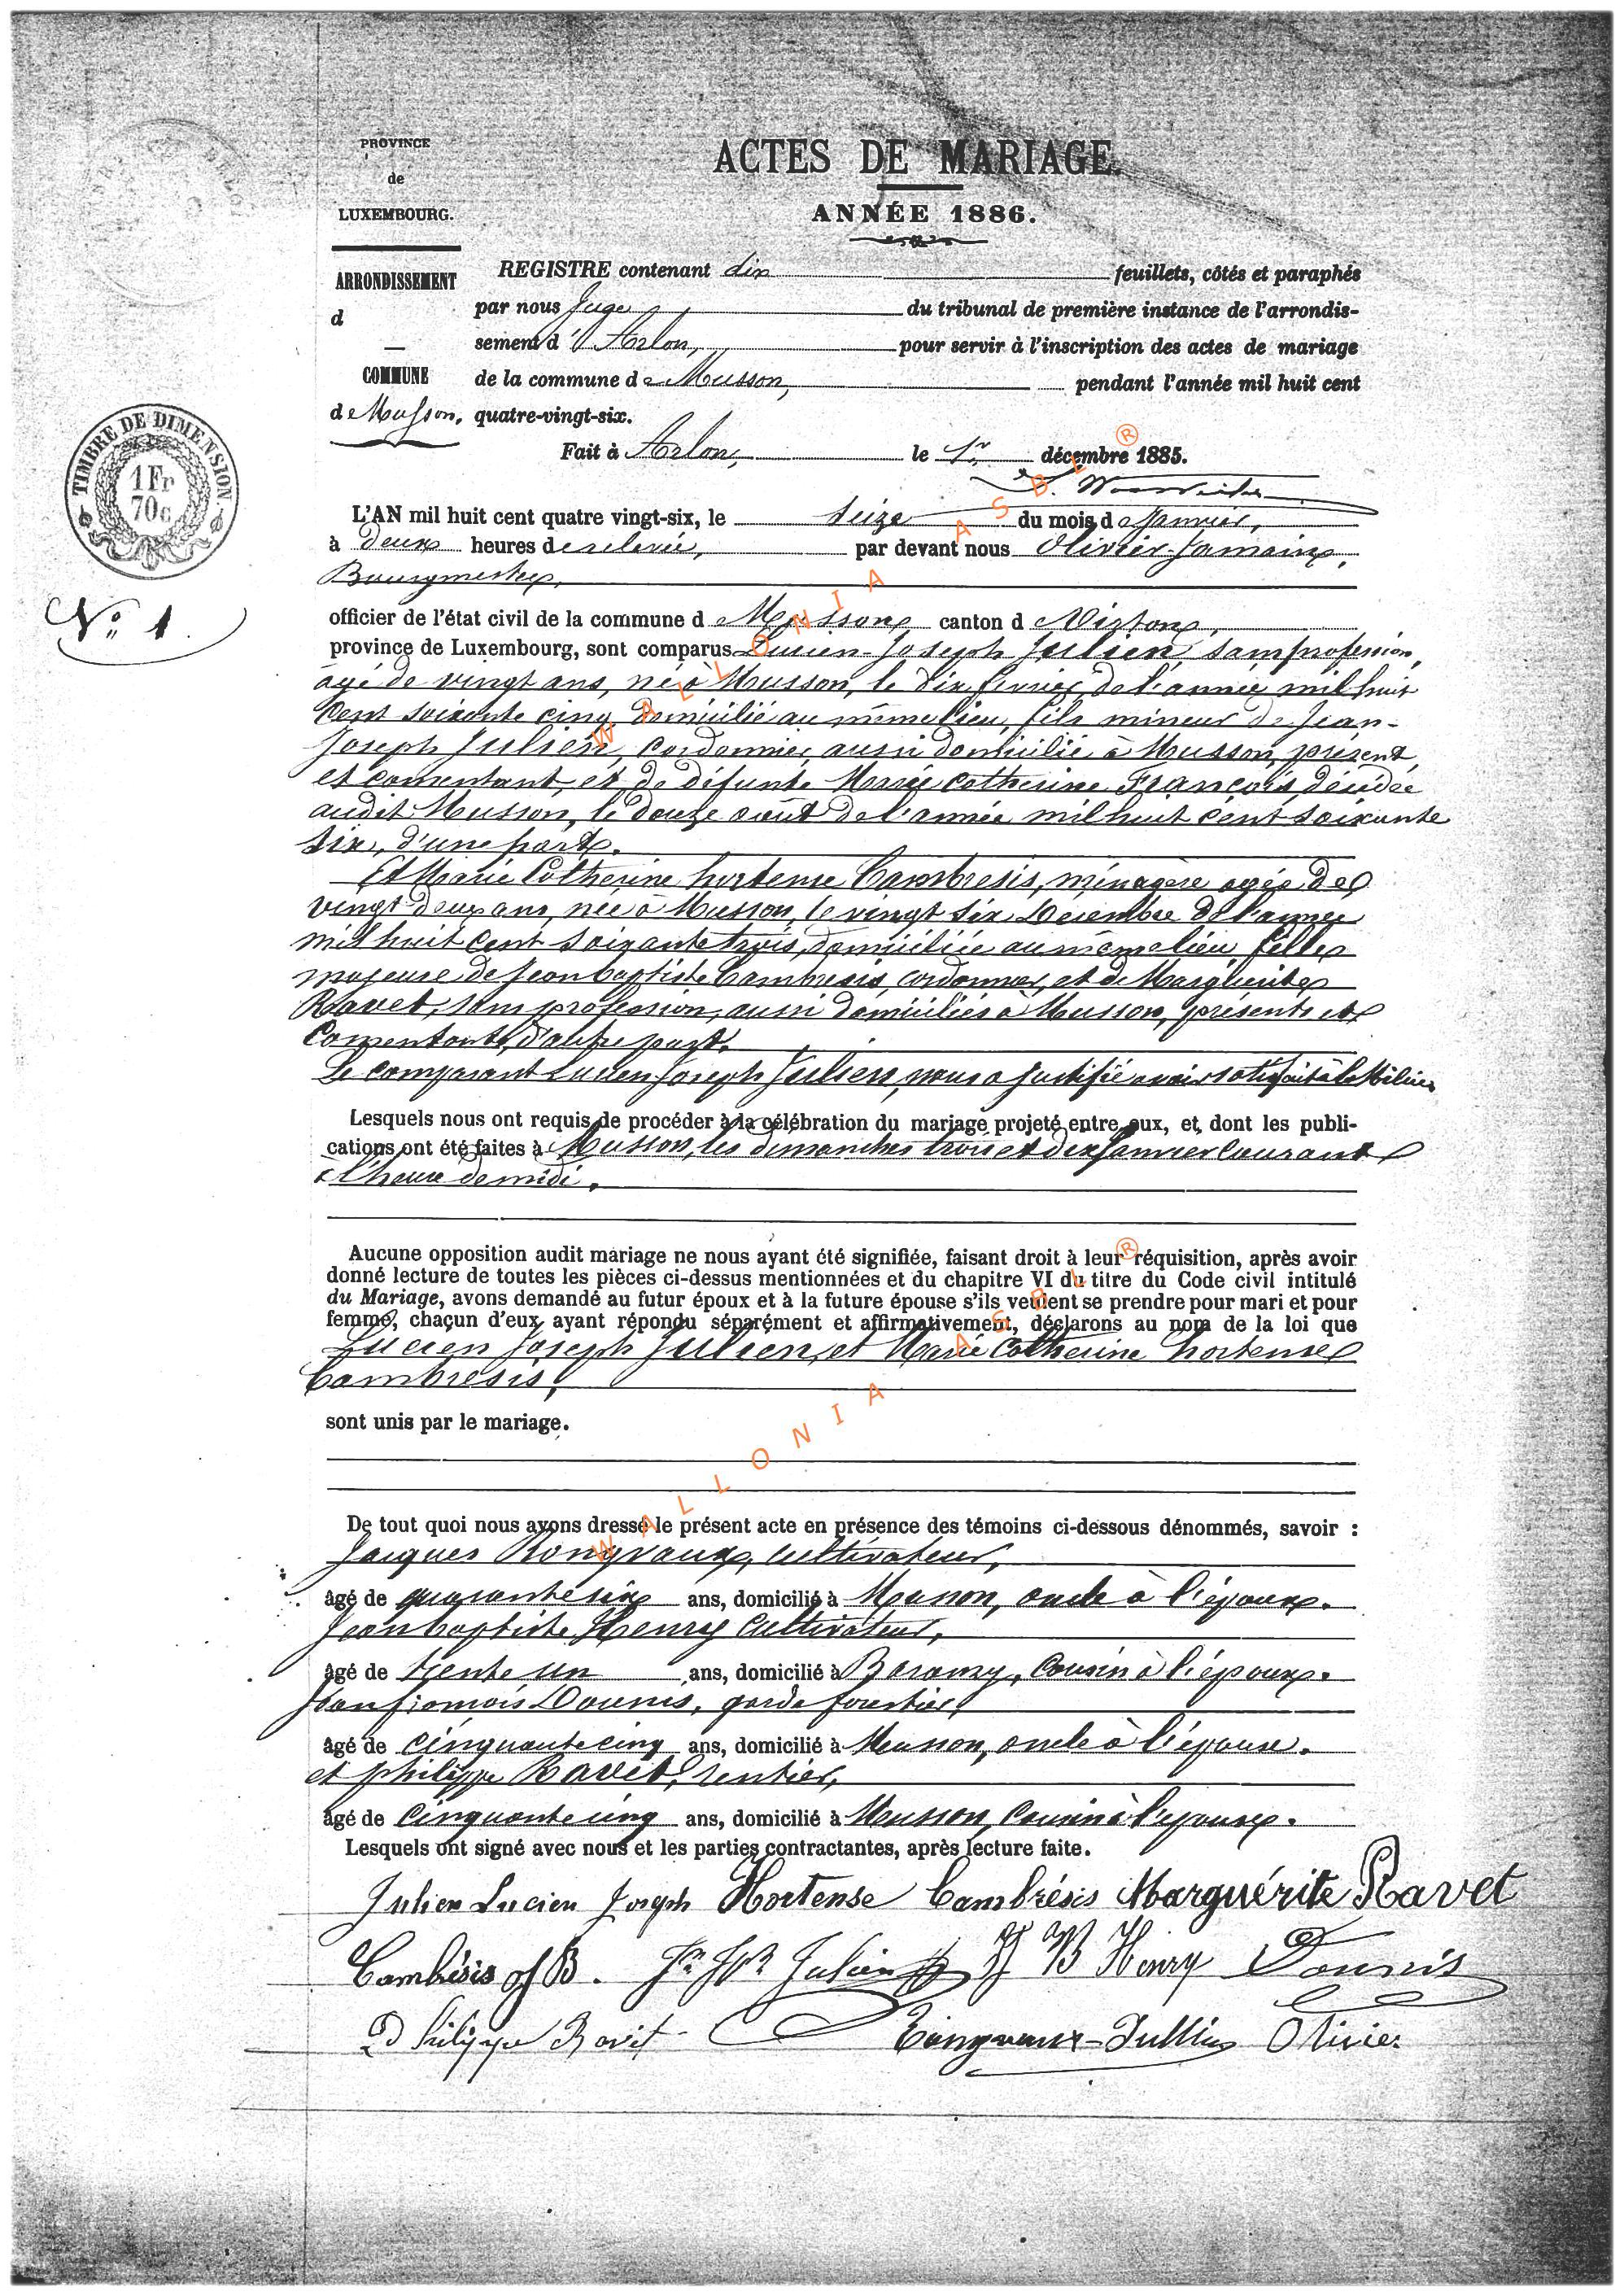 PROVINCE
de
LUXEMBOURG.
ACTES DE MARIAGE.
ANNÉE 1886.
ARRONDISSEMENT
d
COMMUNE
de Musson,
REGISTRE contenant dix feuillets, côtés et paraphés
par nous Juge du tribunal de première instance de l'arrondis-
sement d'Arlon, pour servir à l'inscription des actes de mariage
de la commune de Musson, pendant l'année mil huit cent
quatre-vingt-six.
Fait à Arlon, le 1er décembre 1885.
TIMBRE DE DIMENSION
1 Fr
70c
N° 1.
L'AN mil huit cent quatre vingt-six, le seize du mois de Janvier,
à deux heures de relevée, par devant nous Olivier Jamain,
Bourgmestre,
officier de l'état civil de la commune de Musson, canton d Virton,
province de Luxembourg, sont comparus Lucien-Joseph Julien, sans profession,
âgé de vingt ans, né à Musson, le dix février de l'année mil huit
cent soixante cinq, domicilié au même lieu, fils mineur de Jean-
Joseph Julien, cordonnier, aussi domicilié à Musson, présent,
et consentant, et de défunte Marie Catherine François, décédée
audit Musson, le douze août de l'année mil huit cent soixante
six, d'une part.
Et Marie Catherine hortense Cambresis, ménagère agée de
vingt deux ans, née à Musson, le vingt six Décembre de l'année
mil huit cent soixante trois, domiciliée au même lieu, fille
majeure de Jean baptiste Cambresis, cordonnier, et de Marguerite
Ravet, sans profession, aussi domiciliés à Musson, présents et
Consentants, d'autre part.
Le comparant Lucien Joseph Julien, nous a justifié avoir satisfait à la Milice
Lesquels nous ont requis de procéder à la célébration du mariage projeté entre eux, et dont les publi-
cations ont été faites à Musson, les dimanches trois et dix Janvier Courant
à l'heure de midi.
Aucune opposition audit mariage ne nous ayant été signifiée, faisant droit à leur réquisition, après avoir
donné lecture de toutes les pièces ci-dessus mentionnées et du chapitre VI du titre du Code civil intitulé
du Mariage, avons demandé au futur époux et à la future épouse s'ils veulent se prendre pour mari et pour
femme, chacun d'eux ayant répondu séparément et affirmativement, déclarons au nom de la loi que
Lucien Joseph Julien, et Marie Catherine hortense
Cambresis,
sont unis par le mariage.
De tout quoi nous avons dressé le présent acte en présence des témoins ci-dessous dénommés, savoir :
Jacques Rongvaux, cultivateur,
âgé de quarante six ans, domicilié à Musson, oncle à l'époux.
Jean baptiste Henry cultivateur,
âgé de trente un ans, domicilié à Baranzy, Cousin à l'époux.
Jean françois Dounis, garde forestier,
âgé de cinquante cinq ans, domicilié à Musson, oncle à l'épouse.
et philippe Ravet, rentier,
âgé de cinquante cinq ans, domicilié à Musson, Cousin à l'épouse.
Lesquels ont signé avec nous et les parties contractantes, après lecture faite.
Julien Lucien Joseph Hortense Cambrésis Marguérite Ravet
Cambrésis J B. Jn Jph Julien J B Henry Dounis
Philippe Ravet Rongvaux-Jullien Olivier
WALLONIA ASBL ®
WALLONIA ASBL ®